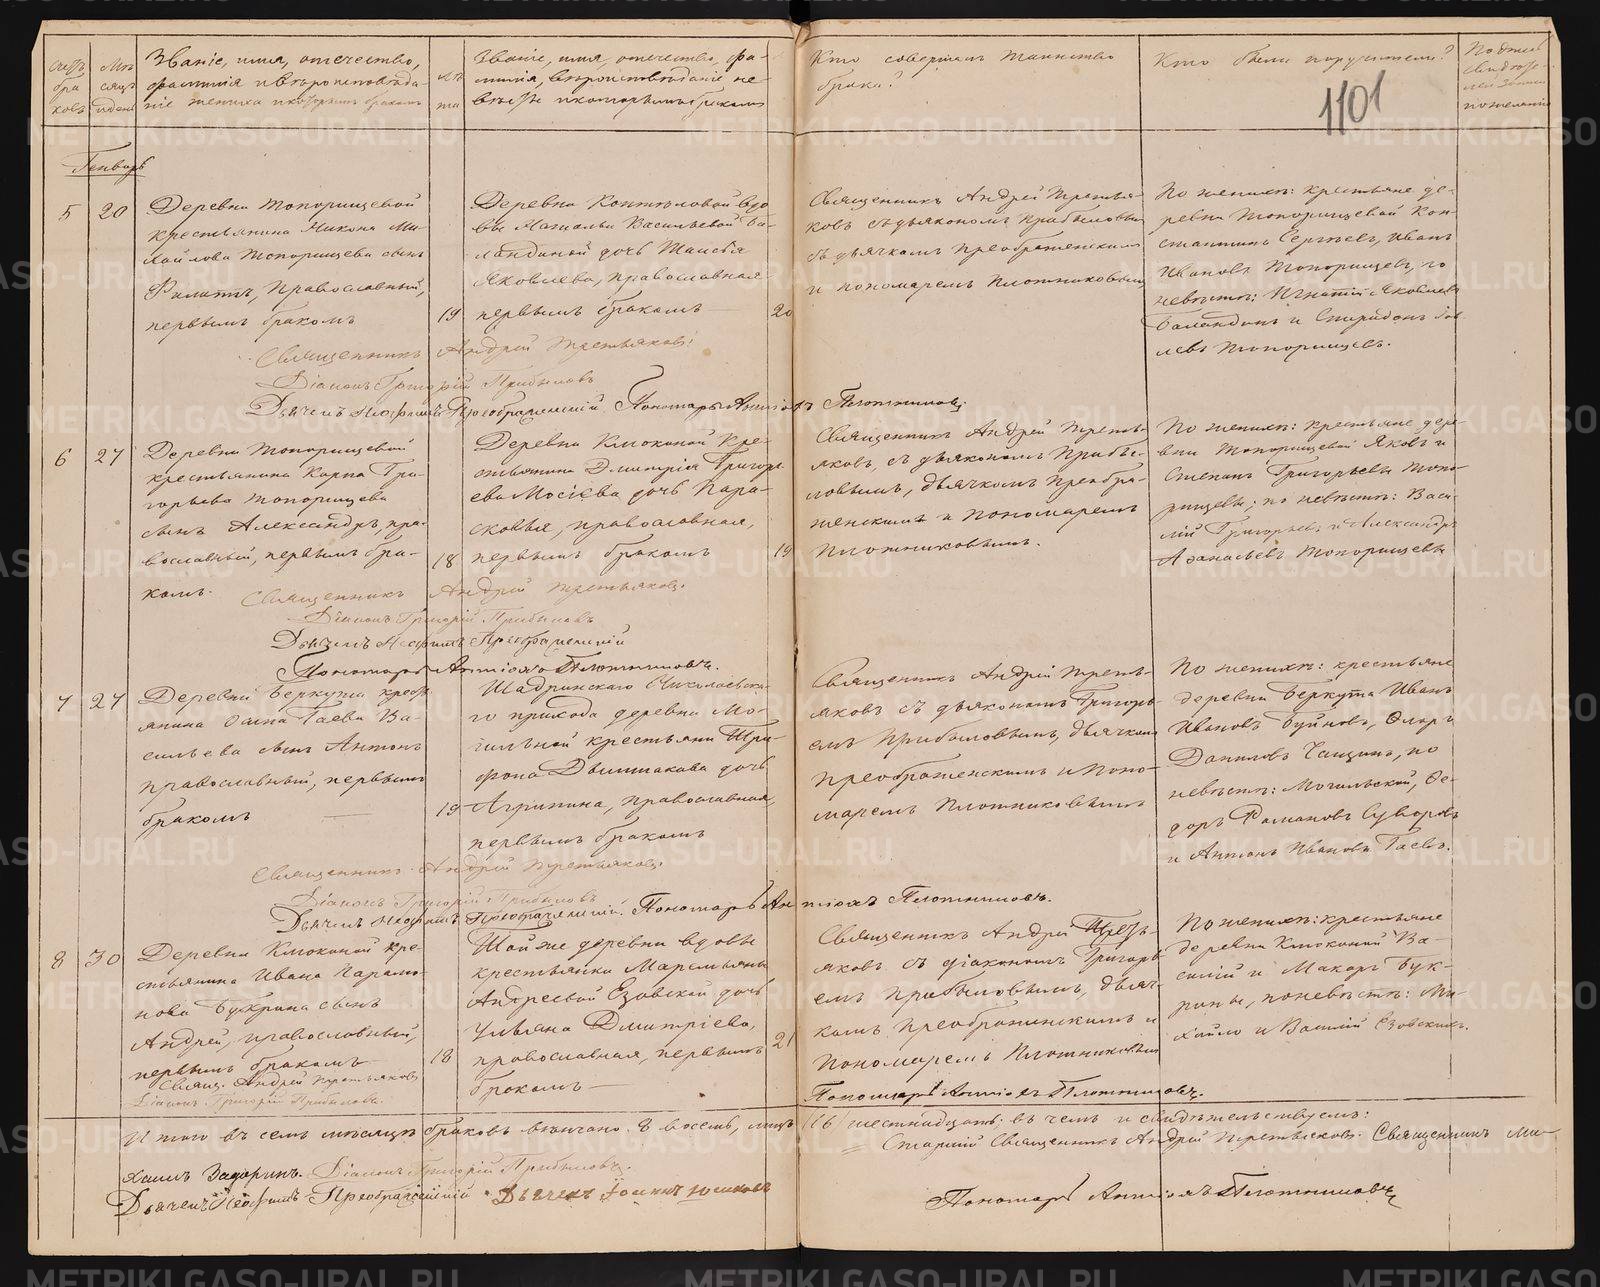 Званіе, имя, отечество,
фамилія и вѣроисповѣда-
ніе жениха и которымъ бракомъ
лѣ
та
Званіе, имя, отечество, фа-
милія, вѣроисповѣданіе не-
вѣсты и которымъ бракомъ
Кто совершалъ таинство
брака?
Кто были поручители?
1101
Генварь
5 20
Деревни Топорищевой
крестьянина Никона Ми-
хайлова Топорищева сынъ
Филиппъ, православный,
первымъ бракомъ
19
Деревни Коптѣловой вдо
вы Натальи Васильевой Ба-
ландиной дочь Таисья
Яковлева, православная
первымъ бракомъ
20
Священникъ Андрей Третья-
ковъ съ дьякономъ Прибыловымъ
съ дьячкомъ Преображенскимъ
и пономаремъ Плотниковымъ
По женихѣ: крестьяне де-
ревни Топорищевой Кон-
стантинъ Сергѣевъ, Иванъ
Ивановъ Топорищевъ, по
невѣстѣ: Игнатій Яковлевъ
Баландинъ и Спиридонъ
Топорищевъ.
Священникъ Андрей Третьяковъ.
Діаконъ Григорій Прибыловъ
Дьячекъ Неофитъ Преображенскій. Пономарь Антіохъ Плотниковъ
6 27
Деревни Топорищевой
крестьянина Карпа Гри-
горьева Топорищева
сынъ Александръ, пра-
вославный, первымъ бра-
комъ.
18
Деревни Клюкиной кре-
стьянина Димитрія Григорь
ева Мосіева дочь Пара-
скевья, православная,
первымъ бракомъ
19
Священникъ Андрей Треть-
яковъ, съ дьякономъ Прибы-
ловымъ, дьячкомъ Преобра-
женскимъ и пономаремъ
Плотниковымъ.
По женихѣ: крестьяне дере
вни Топорищевой Яковъ и
Степанъ Григорьевы Топо-
рищевы; по невѣстѣ: Васи-
лій Григорьевъ и Александръ
Афанасьевъ Топорищевы
Священникъ Андрей Третьяковъ.
Діаконъ Григорій Прибыловъ
Дьячекъ Неофитъ Преображенскій
Пономарь Антіохъ Плотниковъ.
7 27
Деревни Беркута крестъ
янина Гаева Ва-
сильева сынъ Антонъ
православный, первымъ
бракомъ
19
Шадринскаго Николаевска-
го прихода деревни Мо-
гильной крестьяни Три-
фона дочь
Агрипина, православная,
первымъ бракомъ
Священникъ Андрей Треть-
яковъ съ дьякономъ Григорь
емъ Прибыловымъ, дьячкомъ
Преображенскимъ и поно-
маремъ Плотниковымъ
По женихѣ: крестьяне
деревни Беркута Иванъ
Ивановъ
Даниловъ по
невѣстѣ: Могильской, Фе-
доръ Романовъ Суворовъ
и Антонъ Ивановъ Гаевъ.
Священникъ Андрей Третьяковъ
Діаконъ Григорій Прибыловъ
Дьячекъ Неофитъ Преображенскій. Пономарь Антіохъ Плотниковъ.
8 30
Деревни Клюкиной кре-
стьянина Ивана Парамо-
нова Букрина сынъ
Андрей, православный,
первымъ бракомъ
18
Той же деревни вдовы
крестьянки Маремьяны
Андреевой Езовской дочь
Ульяна Дмитріева,
православная, первымъ
бракомъ
21
Священникъ Андрей Треть-
яковъ съ діакономъ Григорь
емъ Прибыловымъ, дьяч-
комъ Преображенскимъ и
пономаремъ Плотниковымъ
По женихѣ: крестьяне
деревни Клюкиной Ва-
силій и Макаръ Бук-
рины, по невѣстѣ: Ми-
хайло и Василій Езовскихъ.
Свящ. Андрей Третьяковъ
Діаконъ Григорій Прибыловъ.
Пономарь Антіохъ Плотниковъ.
Итого въ семъ мѣсяцѣ браковъ вѣнчано 8 восемь, лицъ 16 шестнадцать. въ чемъ и свидѣтельствуемъ:
Старшій Священникъ Андрей Третьяковъ. Священникъ Ми-
хаилъ Задоринъ. Діаконъ Григорій Прибыловъ.
Дьячекъ Неофитъ Преображенскій Дьячекъ
Пономарь Антіохъ Плотниковъ
METRIKI.GASO-URAL.RU